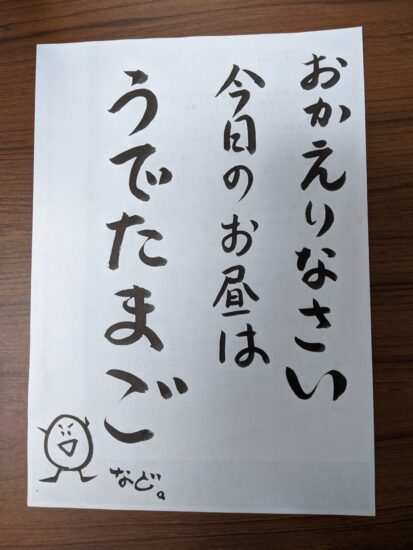 おかえりなさい
今日のお昼は
うでたまご
など。